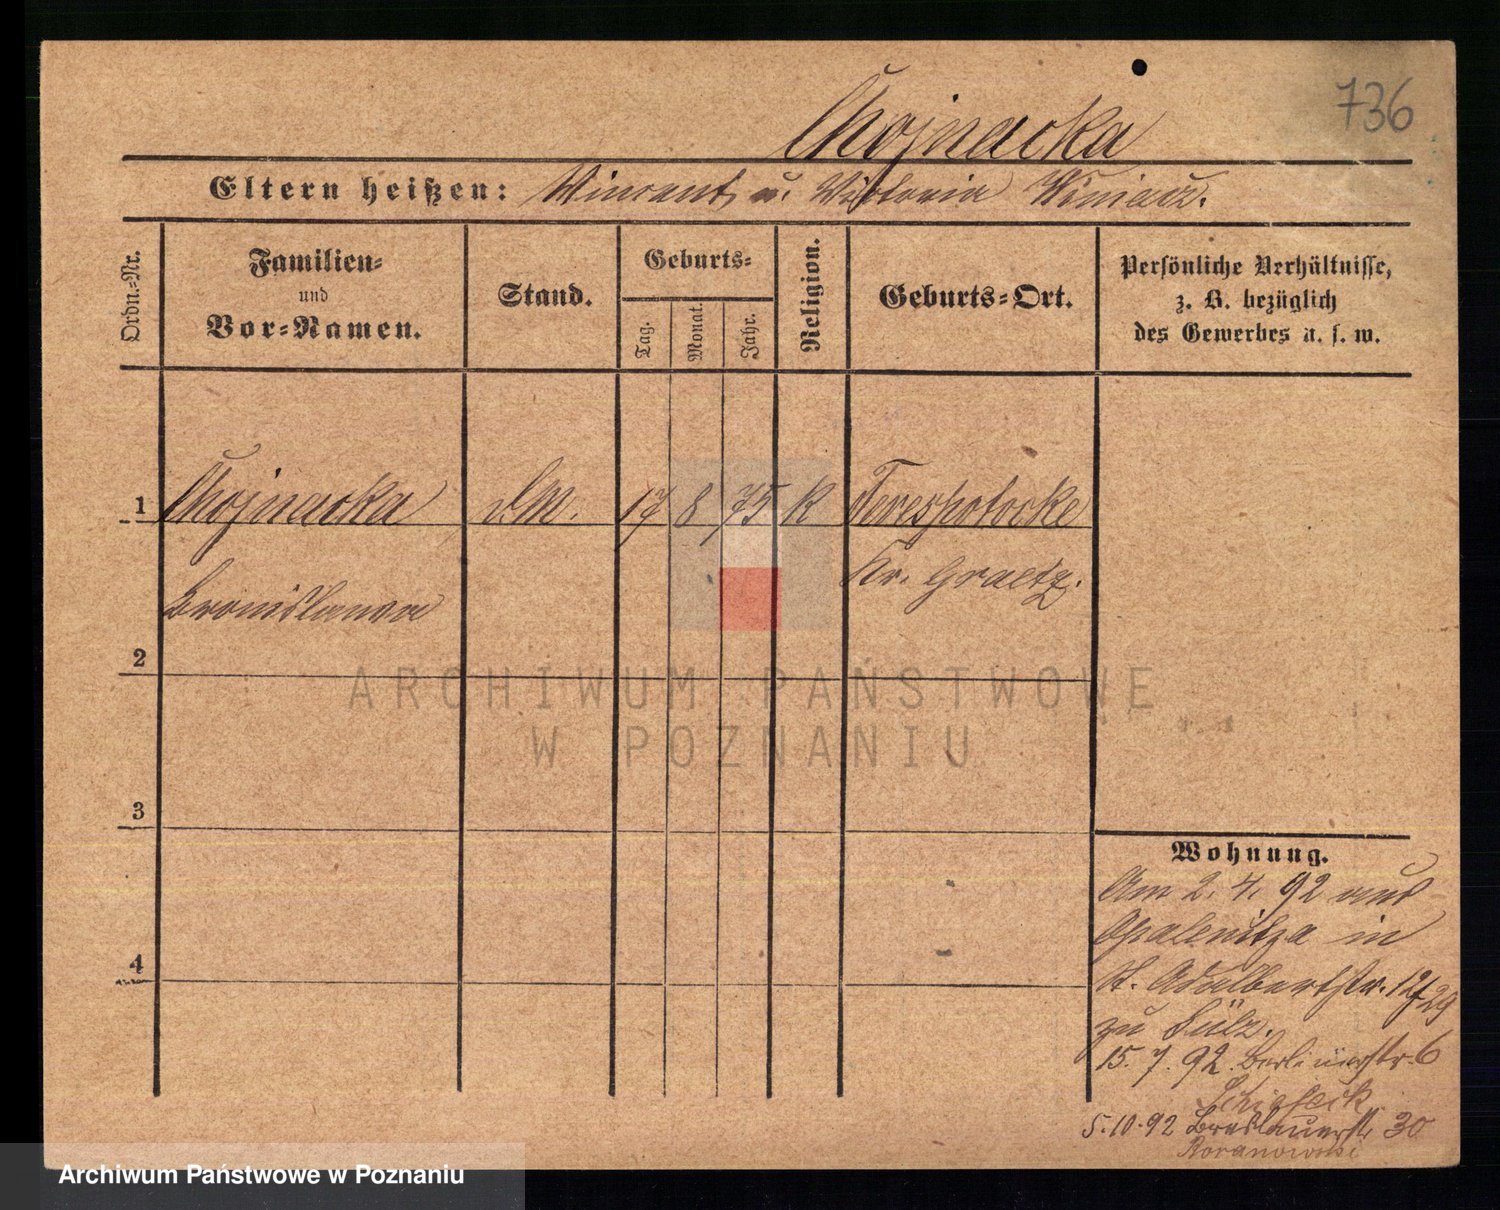 736
Chojnacka
Eltern heißen: Vincent u. Viktoria Winiarz.
Ordn.-Nr.
Familien-
und
Vor-Namen.
Stand.
Geburts-
Tag.
Monat.
Jahr.
Religion.
Geburts-Ort.
Persönliche Verhältnisse,
z. B. bezüglich
des Gewerbes u. s. w.
1 Chojnacka D.M. 17 8 75 K Terespotocke
Kr. Graetz.
Bronislawa
2
3
4
Wohnung.
Am 2. 4. 92 aus
Opalenitza in
St. Adalbertstr.
zu Sülz.
15. 7. 92 Berlinerstr. 6
5.10.92 Breslauerstr 30
ARCHIWUM PAŃSTWOWE
W POZNANIU
Archiwum Państwowe w Poznaniu